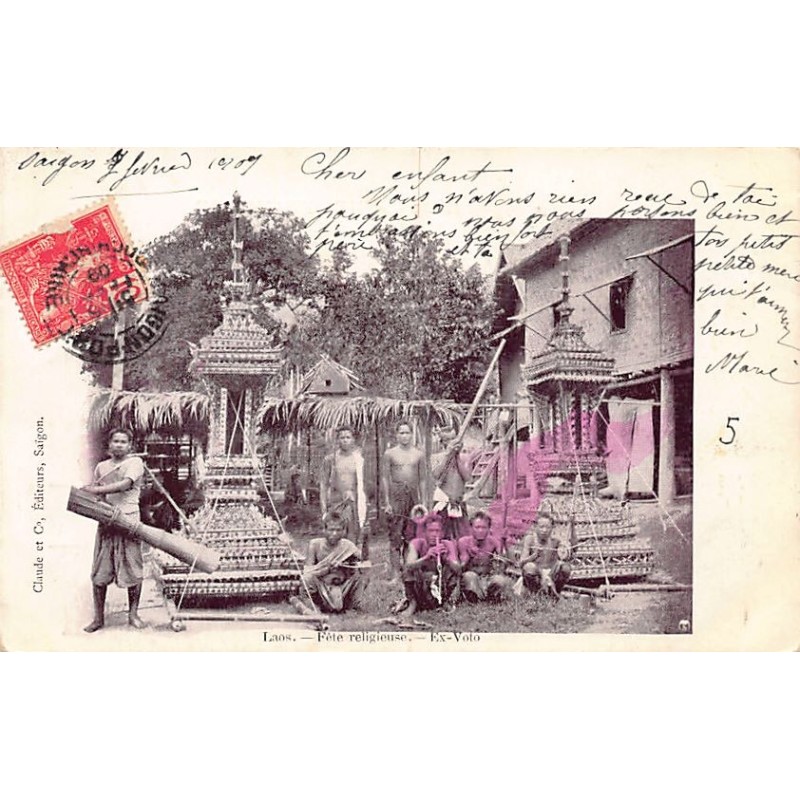 Saigon 7 février 1909
Cher enfant
Nous n'avons rien reçu de toi
pourquoi? nous nous portons bien et
t'embrassons bien fort ton petit
père et ta petite mère
qui t'aiment
bien
Marie
5
SAIGON
Claude et Co, Éditeurs, Saïgon.
Laos. — Fête religieuse. — Ex-Voto